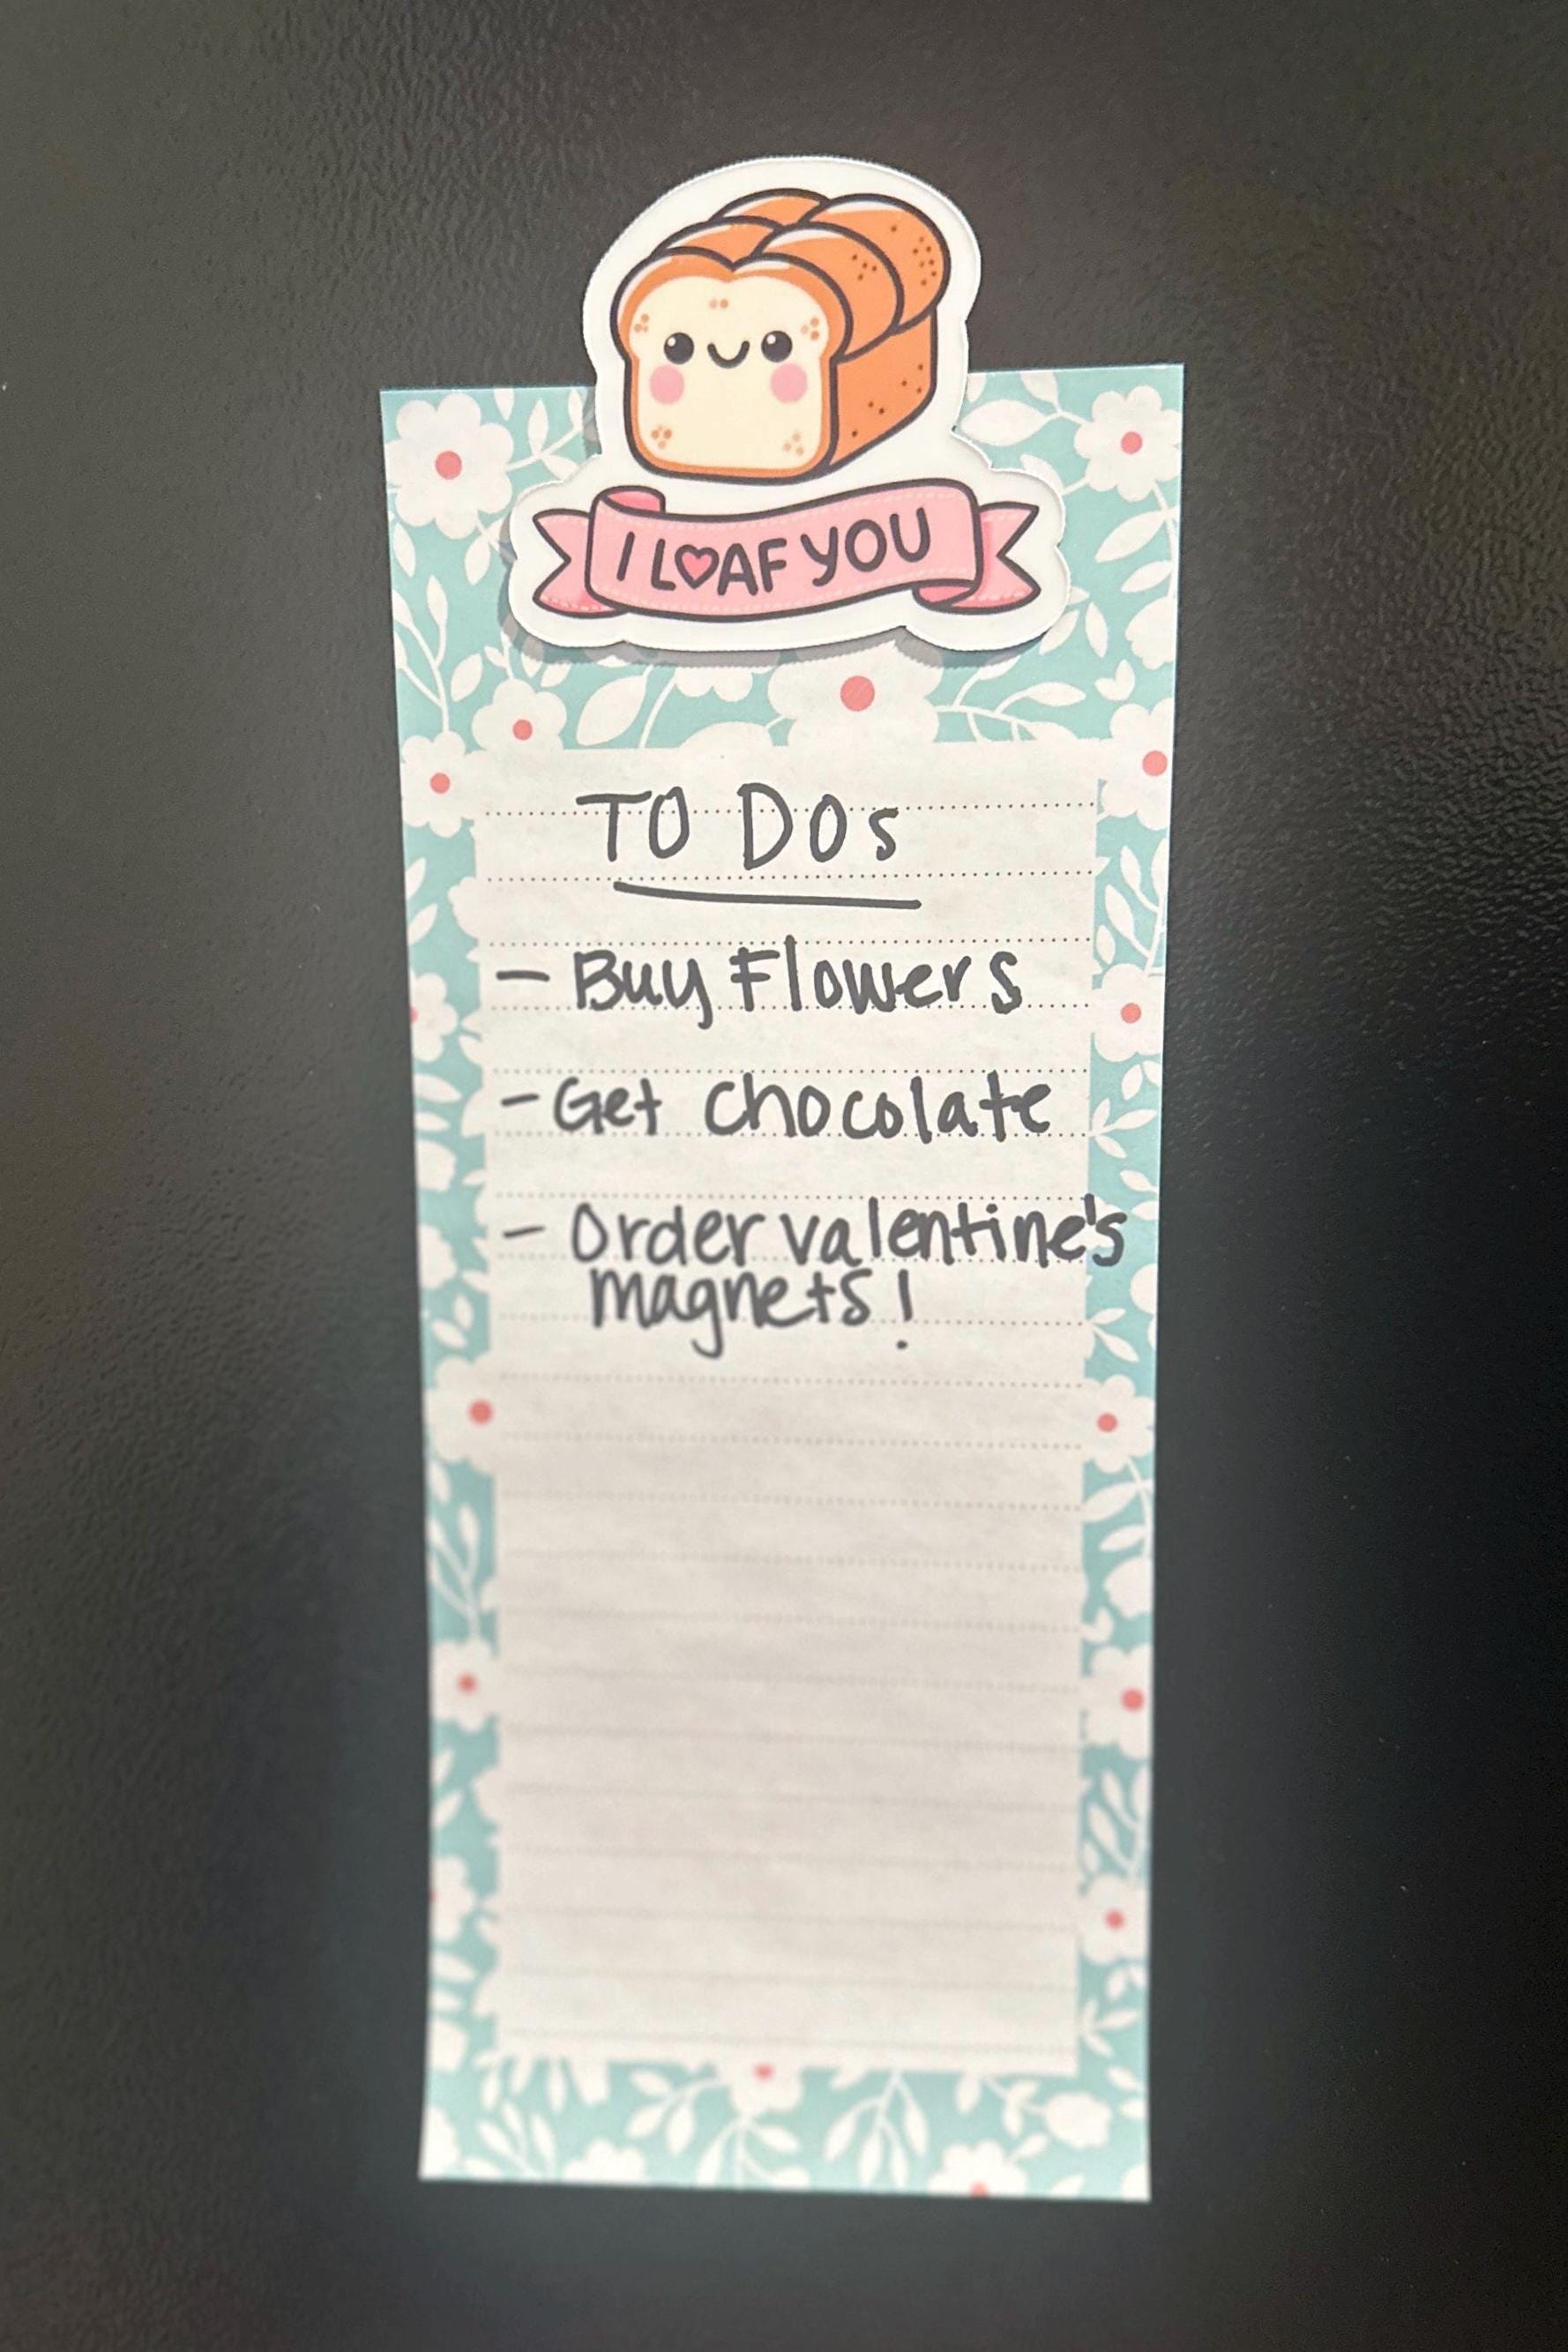 I L♥AF YOU
TO DOs
- Buy Flowers
- Get chocolate
- Order valentine's
magnets!